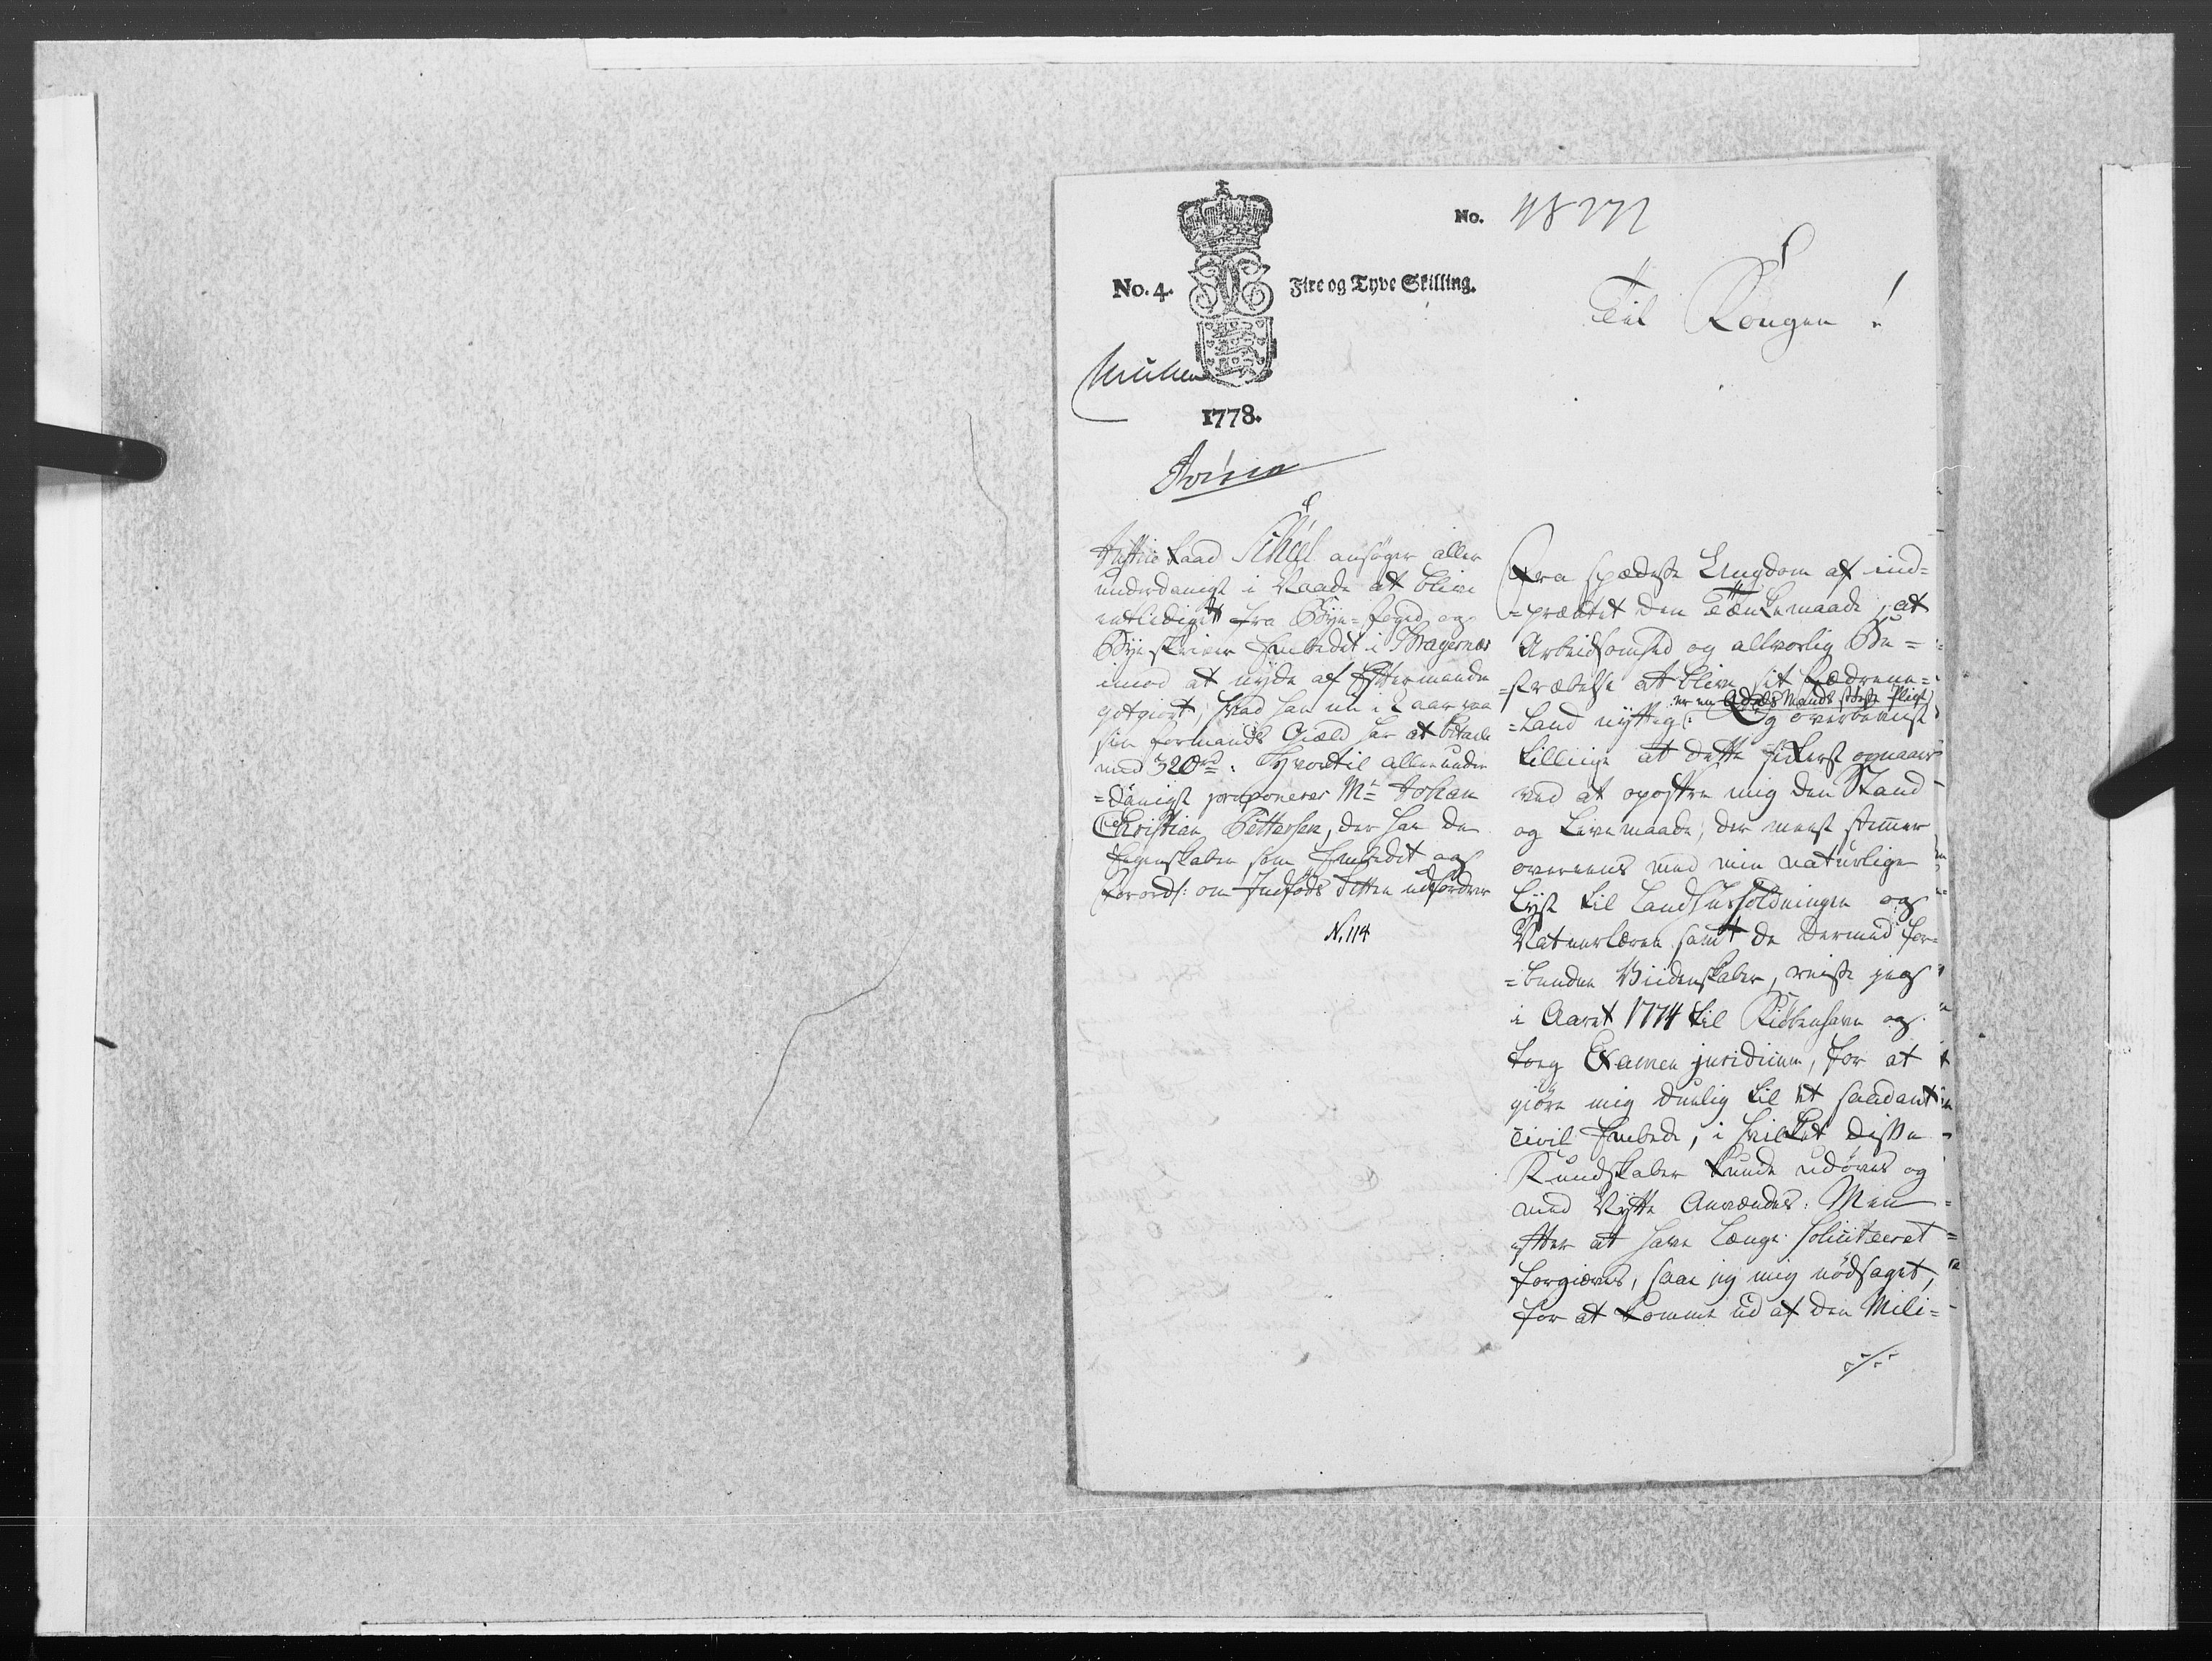 No. 48772
No. 4. Fire og Tyve Skilling.
Til Kongen!
1778.
Justice Raad Scheel ansøger aller
underdanigst i Naade at blive
entlediget fra Bye-foged og
Bye skriver Embedet i Bragernæs
imod at nyde af Eftermanden
godtgiort, hvad han nu i 2 aar paa
sin Formands Giæld har at betale
med 320 rd: Hvortil allerunder
=danigst proponerer Mr Johan
Christian Pettersen, der har de
Egenskaber som Embedet og
Forord: om Indføds Retten udfordrer
N. 114
Fra spædeste Ungdom af ind=
=præntet den Tænkemaade, at
Arbeidsomhed og alvorlig Be=
=stræbelse at blive sit Fædrene=
er en Adels Mands største Pligt
=Land nyttig: Og overbeviist
tillige at dette sikkerst opnaaes
ved at opofre mig den Stand
og Levemaade, der meest stemmer
overeens med min naturlige
Lyst til Landhuusholdningen og
Naturlæren samt de dermed for=
=bundne Viidenskaber, reiste jeg
i Aaret 1774 til Kiøbenhavn og
tog Examen juridicum, for at
giøre mig duelig til et saadant
Civil Embede, i hvilket disse
Kundskaber kunde udøves og
med Nytte Anvendes: Men
efter at have længe soliciteeret
forgieves, saae jeg mig nødsaget,
for at komme ud af den Mili=